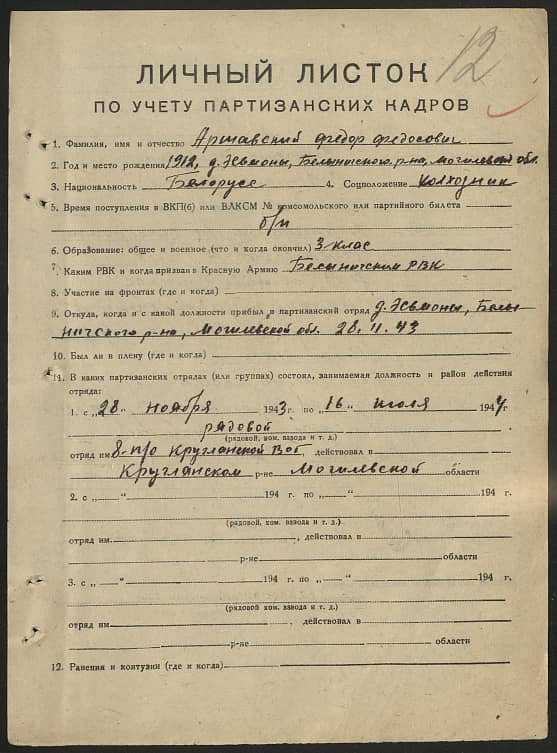 12
ЛИЧНЫЙ ЛИСТОК
ПО УЧЕТУ ПАРТИЗАНСКИХ КАДРОВ
1. Фамилия, имя и отчество Аршавский Федор Федосович
2. Год и место рождения 1912, д. Эсьмоны, Белыничского р-на, Могилевской обл.
3. Национальность Белорусс 4. Соцположение колхозник
5. Время поступления в ВКП(б) или ВЛКСМ № комсомольского или партийного билета
б/п
6. Образование: общее и военное (что и когда окончил) 3 клас
7. Каким РВК и когда призван в Красную Армию Белыничским РВК
8. Участие на фронтах (где и когда)
9. Откуда, когда и с какой должности прибыл в партизанский отряд д. Эсьмоны, Белы-
ничского р-на, Могилевской обл. 28.11.43
10. Был ли в плену (где и когда)
11. В каких партизанских отрядах (или группах) состоял, занимаемая должность и район действия
отряда:
1. с „28“ ноября 1943 г. по „16“ июля 1944 г
рядовой
(рядовой, ком. взвода и т. д.)
отряд им 8-п/о Круглянской В0г, действовал в
Круглянском р-не Могилевской области
2. с „ “ 194 г. по „ “ 194 г.
(рядовой, ком. взвода и т. д.)
отряд им. , действовал в
р-не области
3. с „ “ 194 г. по „ “ 194 г.
(рядовой, ком. взвода и т. д.)
отряд им , действовал в
р-не области
12. Ранения и контузии (где и когда)